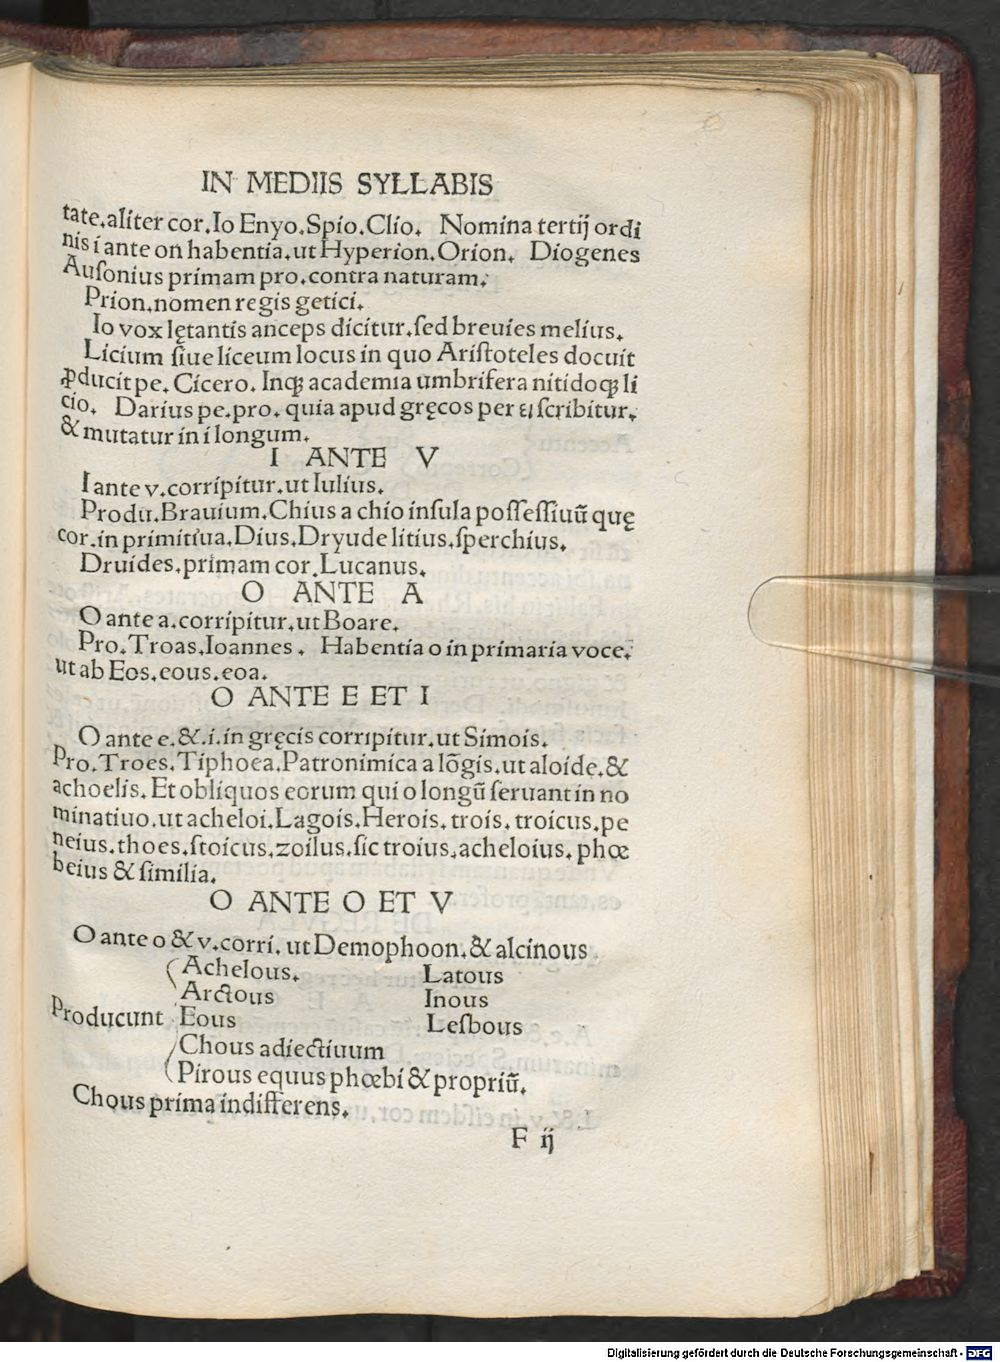 IN MEDIIS SYLLABIS
tate.aliter cor.Io Enyo.Spio.Clio. Nomina tertij ordi
nis i ante on habentia.ut Hyperion.Orion. Diogenes
Auſonius primam pro.contra naturam.
Prion.nomen regis getici.
Io vox lętantis anceps dicitur.ſed breuies melius.
Licium ſiue liceum locus in quo Ariſtoteles docuit
ꝓducit pe. Cicero. Inqꝫ academia umbrifera nitidoqꝫ li
cio. Darius pe.pro. quia apud gręcos per ει ſcribitur.
& mutatur in i longum.
I ANTE V
I ante v.corripitur.ut Iulius.
Produ.Brauium.Chius a chio inſula poſſeſſiuū quę
cor.in primitiua.Dius.Dryude litius.ſperchius.
Druides.primam cor.Lucanus.
O ANTE A
O ante a.corripitur.ut Boare.
Pro.Troas.Ioannes. Habentia o in primaria voce.
ut ab Eos.eous.eoa.
O ANTE E ET I
O ante e.&.i.in gręcis corripitur.ut Simois.
Pro.Troes.Tiphoea.Patronimica a lōgis.ut aloide.&
achoelis. Et obliquos eorum qui o longū ſeruant in no
minatiuo.ut acheloi.Lagois.Herois.trois.troicus.pe
neius.thoes.ſtoicus.zoilus.ſic troius.acheloius.phœ
beius & ſimilia.
O ANTE O ET V
O ante o & v.corri. ut Demophoon.& alcinous
Achelous. Latous
Arctous Inous
Producunt Eous Leſbous
Chous adiectiuum
Pirous equus phœbi & propriū.
Chous prima indifferens.
F ij
Digitalisierung gefördert durch die Deutsche Forschungsgemeinschaft - DFG